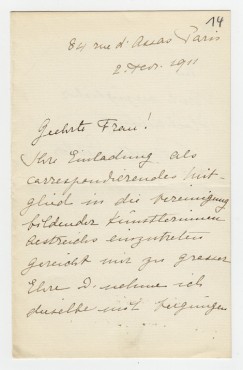 14
84 rue d'Assas Paris
2. Fevr. 1911
Geehrte Frau!
Ihre Einladung als
correspondierendes Mit-
glied in die Vereinigung
bildender Künstlerinnen
Oestreichs einzutreten
gereicht mir zu grosser
Ehre &. nehme ich
dieselbe mit